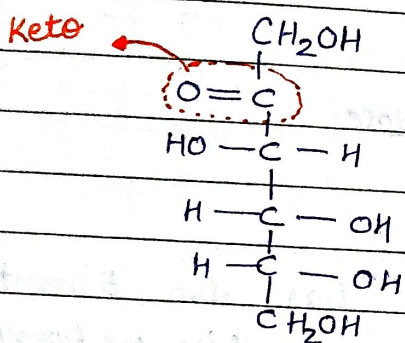 Keto
CH₂OH
O=C
HO—C—H
H—C—OH
H—C—OH
CH₂OH